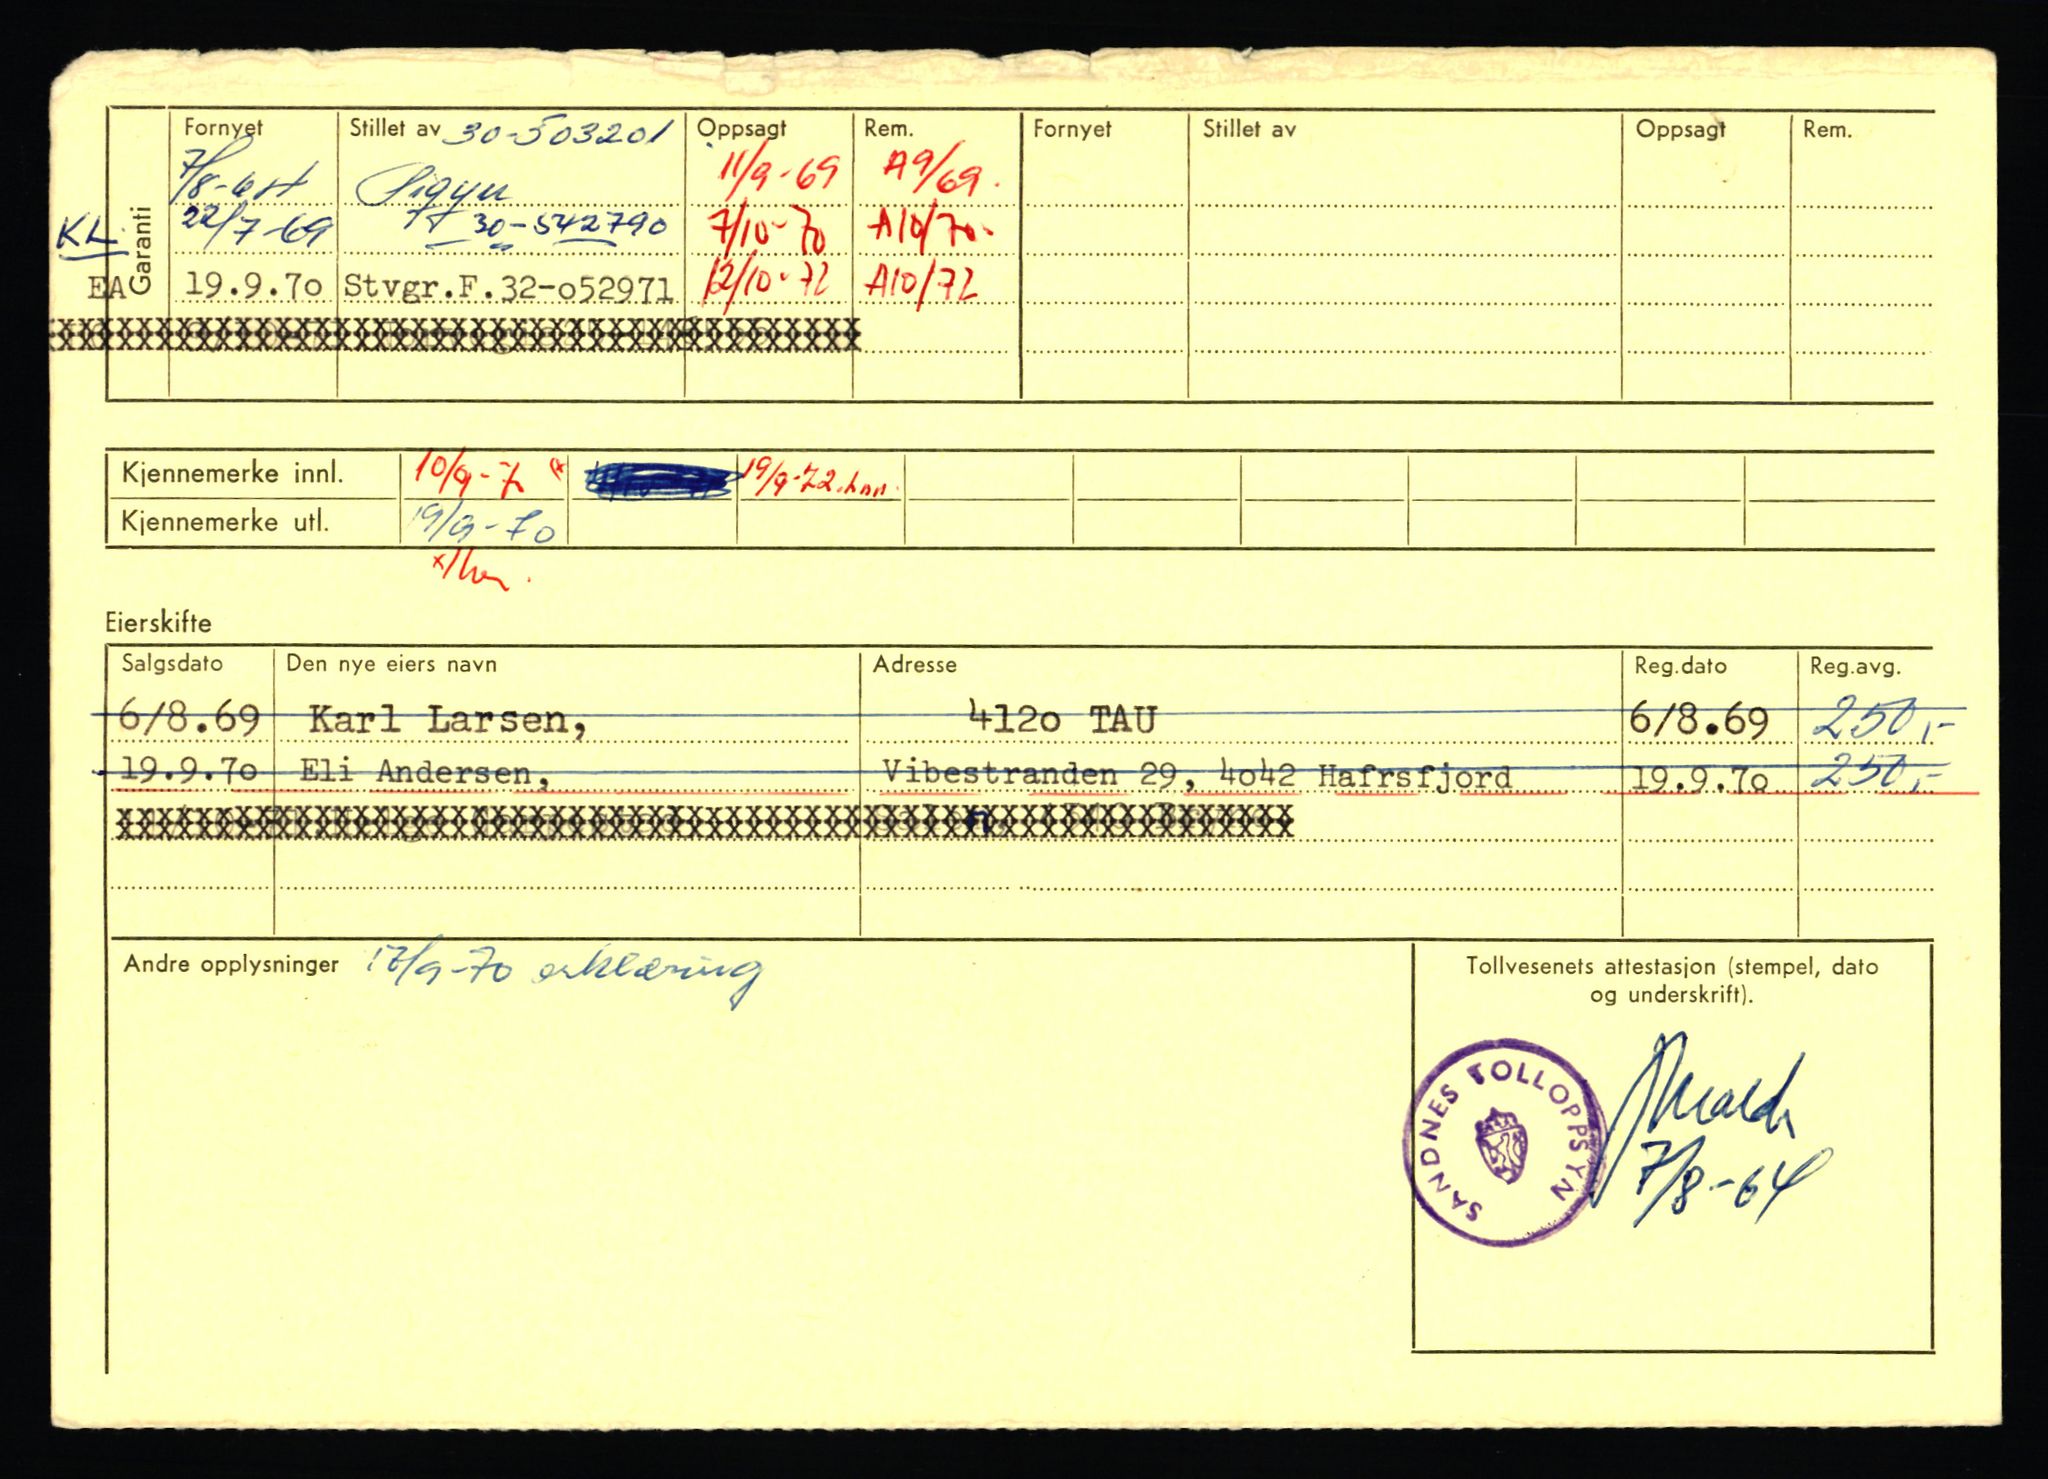 Garanti
Fornyet Stillet av 30-503201 Oppsagt Rem. Fornyet Stillet av Oppsagt Rem.
7/8-64 Sigyn 11/9-69 A9/69.
KL 22/7-69 30-542790 7/10-70 A10/70.
EA 19.9.7o Stvgr.F.32-o52971 12/10-72 A10/72
Kjennemerke innl. 10/9-7 19/9-72.
Kjennemerke utl. 19/9-70
Eierskifte
Salgsdato Den nye eiers navn Adresse Reg.dato Reg.avg.
6/8.69 Karl Larsen, 412o TAU 6/8.69 250,-
19.9.7o Eli Andersen, Vibestranden 29, 4o42 Hafrsfjord 19.9.7o 250,-
Andre opplysninger 17/9-70 erklæring
Tollvesenets attestasjon (stempel, dato
og underskrift).
SANDNES TOLLOPPSYN
7/8-64